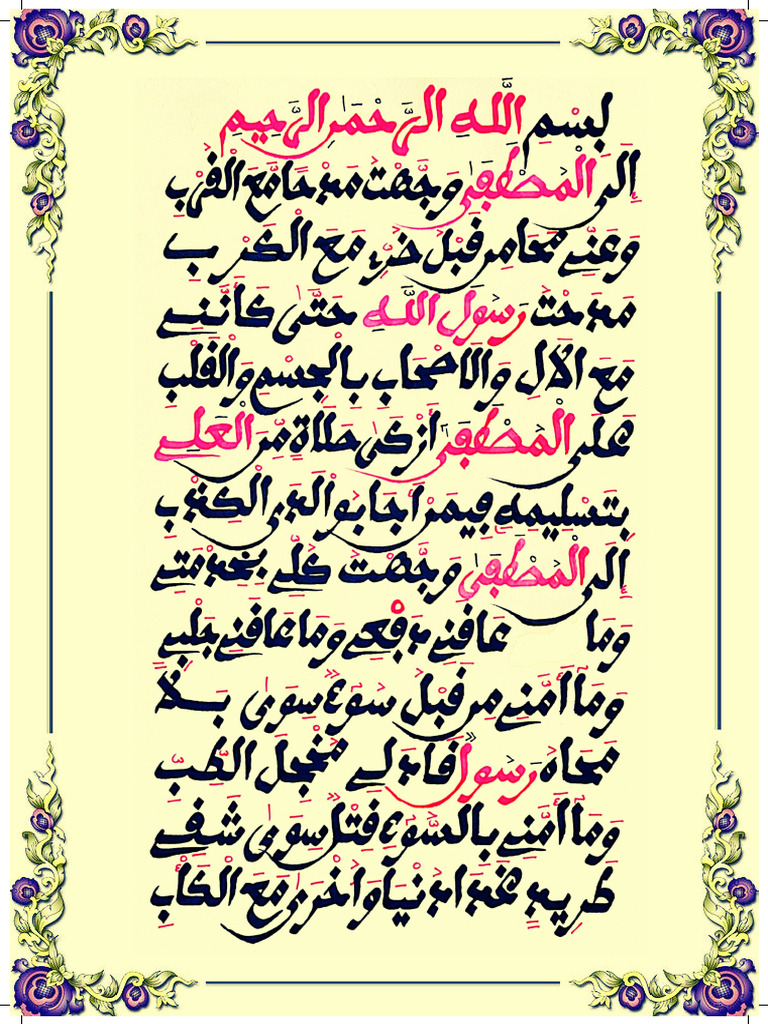 بسم الله الرحمن الرحيم
إلى المصطفى وجهت مدحا مع القرب
وعني محا من قبل ضري مع الكرب
مدحت رسول الله حتى كأنني
مع الآل والأصحاب بالجسم والقلب
على المصطفى أزكى صلاة من العلي
بتسليمه فيمن أجابوا
إلى المصطفى وجهت كلي بخدمتي
وما عاقني دفعي وما عاقني جلبي
وما أمني من قبل سوء سوى بلا
محاه رسول قاد لي مخجل الطب
وما أمني بالسوء قتل سوى شقي
طريد دنيا وأخرى مع الكلب